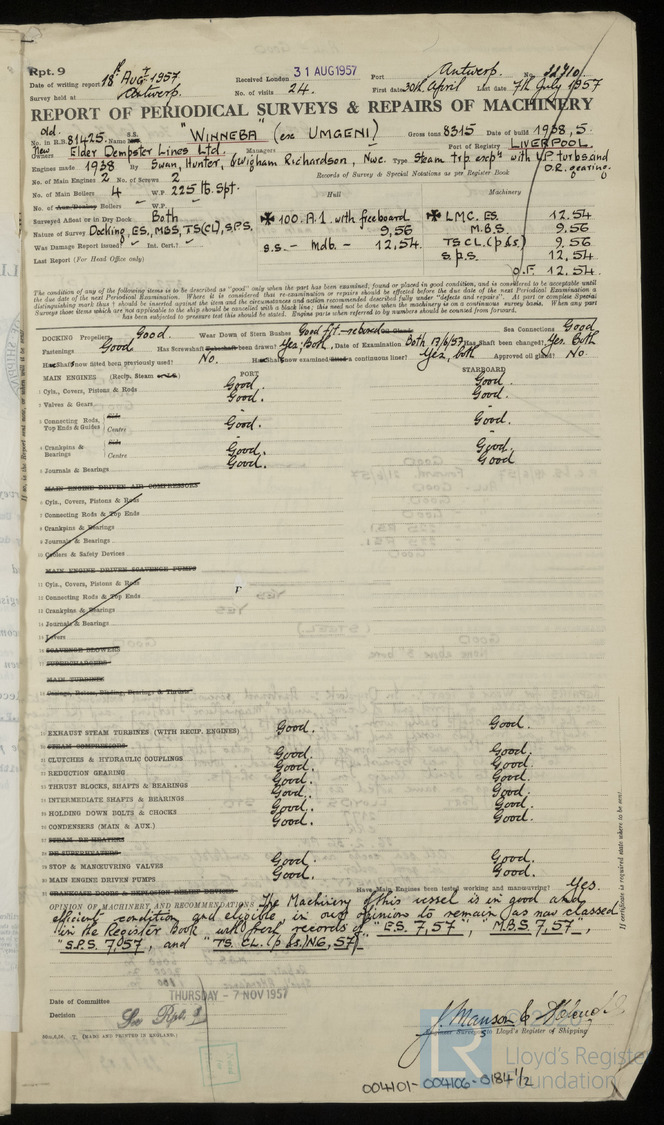 Rpt. 9
Date of writing report 18th Augt 1957 Received London 31 AUG 1957 Port Antwerp. No. 32710
Survey held at Antwerp. No. of visits 24. First date 30th April Last date 7th July 1957
REPORT OF PERIODICAL SURVEYS & REPAIRS OF MACHINERY
Old.
No. in R.B. 81425. Name S.S. "WINNEBA" (ex UMGENI) Gross tons 8315 Date of build 1938, 5.
New
Owners Elder Dempster Lines Ltd. Managers Port of Registry LIVERPOOL.
Engines made 1938 By Swan, Hunter, & Wigham Richardson, Nwc. Type Steam trp. expn with L.P. turbs and D.R. gearing.
No. of Main Engines 2 No. of Screws 2 Records of Survey & Special Notations as per Register Book
No. of Main Boilers 4 W.P. 225 lb. Spt. Hull Machinery
No. of Aux/Donkey Boilers - W.P. -
Surveyed Afloat or in Dry Dock Both ✠ 100. A.1. with freeboard ✠ LMC. ES. 12.54
Nature of Survey Docking, ES, MBS, TS(CL), SPS, 9,56 M.B.S. 9.56
Was Damage Report issued? Int. Cert.? s.s. - Mdb. - 12,54. TS CL. (p & s.) 9,56
Last Report (For Head Office only) S.P.S. 12,54
O.F. 12.54.
The condition of any of the following items is to be described as "good" only when the part has been examined, found or placed in good condition, and is considered to be acceptable until
the due date of the next Periodical Examination. Where it is considered that re-examination or repairs should be effected before the due date of the next Periodical Examination a
distinguishing mark thus † should be inserted against the item and the circumstances and action recommended described fully under "defects and repairs". At part or complete Special
Surveys those items which are not applicable to the ship should be cancelled with a black line; this need not be done when the machinery is on a continuous survey basis. When any part
has been subjected to pressure test this should be stated. Engine parts when referred to by numbers should be counted from forward.
DOCKING Propellers Good. Wear Down of Stern Bushes Good fit - rebored Sea Connections Good.
Fastenings Good Has Screwshaft been drawn? Yes, Both, Date of Examination Both 17/6/57 Has Shaft been changed? Yes. Both
Has Shaft now fitted been previously used? No. Has Shaft now examined a continuous liner? Yes, both Approved oil gland? No.
MAIN ENGINES (Recip. Steam PORT STARBOARD
1 Cyls., Covers, Pistons & Rods Good. Good.
2 Valves & Gears Good. Good.
3 Connecting Rods, Top Ends & Guides Side Centre Good. Good.
4 Crankpins & Bearings Side Centre Good. Good.
5 Journals & Bearings Good. Good
MAIN ENGINE DRIVEN AIR COMPRESSORS
6 Cyls., Covers, Pistons & Rods
7 Connecting Rods & Top Ends
8 Crankpins & Bearings
9 Journals & Bearings
10 Coolers & Safety Devices
MAIN ENGINE DRIVEN SCAVENGE PUMPS
11 Cyls., Covers, Pistons & Rods
12 Connecting Rods & Top Ends
13 Crankpins & Bearings
14 Journals & Bearings
15 Levers
16 SCAVENGE BLOWERS
17 SUPERCHARGERS
MAIN TURBINES
18 Casings, Rotors, Blading, Bearings & Thrusts
19 EXHAUST STEAM TURBINES (WITH RECIP. ENGINES) Good. Good.
20 STEAM COMPRESSORS
21 CLUTCHES & HYDRAULIC COUPLINGS Good. Good.
22 REDUCTION GEARING Good. Good.
23 THRUST BLOCKS, SHAFTS & BEARINGS Good. Good.
24 INTERMEDIATE SHAFTS & BEARINGS Good. Good.
25 HOLDING DOWN BOLTS & CHOCKS Good. Good.
26 CONDENSERS (MAIN & AUX.) Good. Good.
27 STEAM RE-HEATERS
28 DE-SUPERHEATERS
29 STOP & MANŒUVRING VALVES Good. Good.
30 MAIN ENGINE DRIVEN PUMPS Good. Good.
31 CRANKCASE DOORS & EXPLOSION RELIEF DEVICES Have Main Engines been tested working and manœuvring? Yes.
OPINION OF MACHINERY, AND RECOMMENDATIONS The Machinery of this vessel is in good and
efficient condition and eligible, in our opinions to remain as now classed
in the Register Book with fresh records of "E.S. 7,57", "M.B.S. 7,57",
"S.P.S. 7,57", and "TS. CL. (p & s.) N6, 57)"
Date of Committee THURSDAY - 7 NOV 1957
Decision See Rpt. 1
J. Manson &
Surveyors to Lloyd's Register of Shipping
(MADE AND PRINTED IN ENGLAND.)
If certificate is required state where to be sent.
© 2020
Lloyd's Register
Foundation
004101-004106-0184 1/2